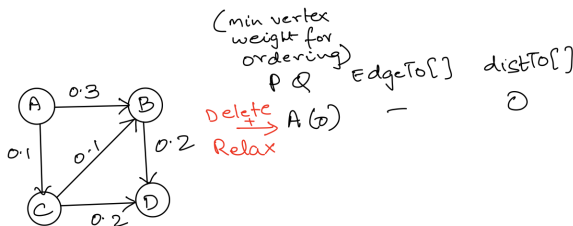 (min vertex
weight for
ordering)
PQ
EdgeTo[]
distTo[]
Delete
+
Relax
A(0)
–
0
A
0.3
B
0.1
0.1
0.2
C
0.2
D